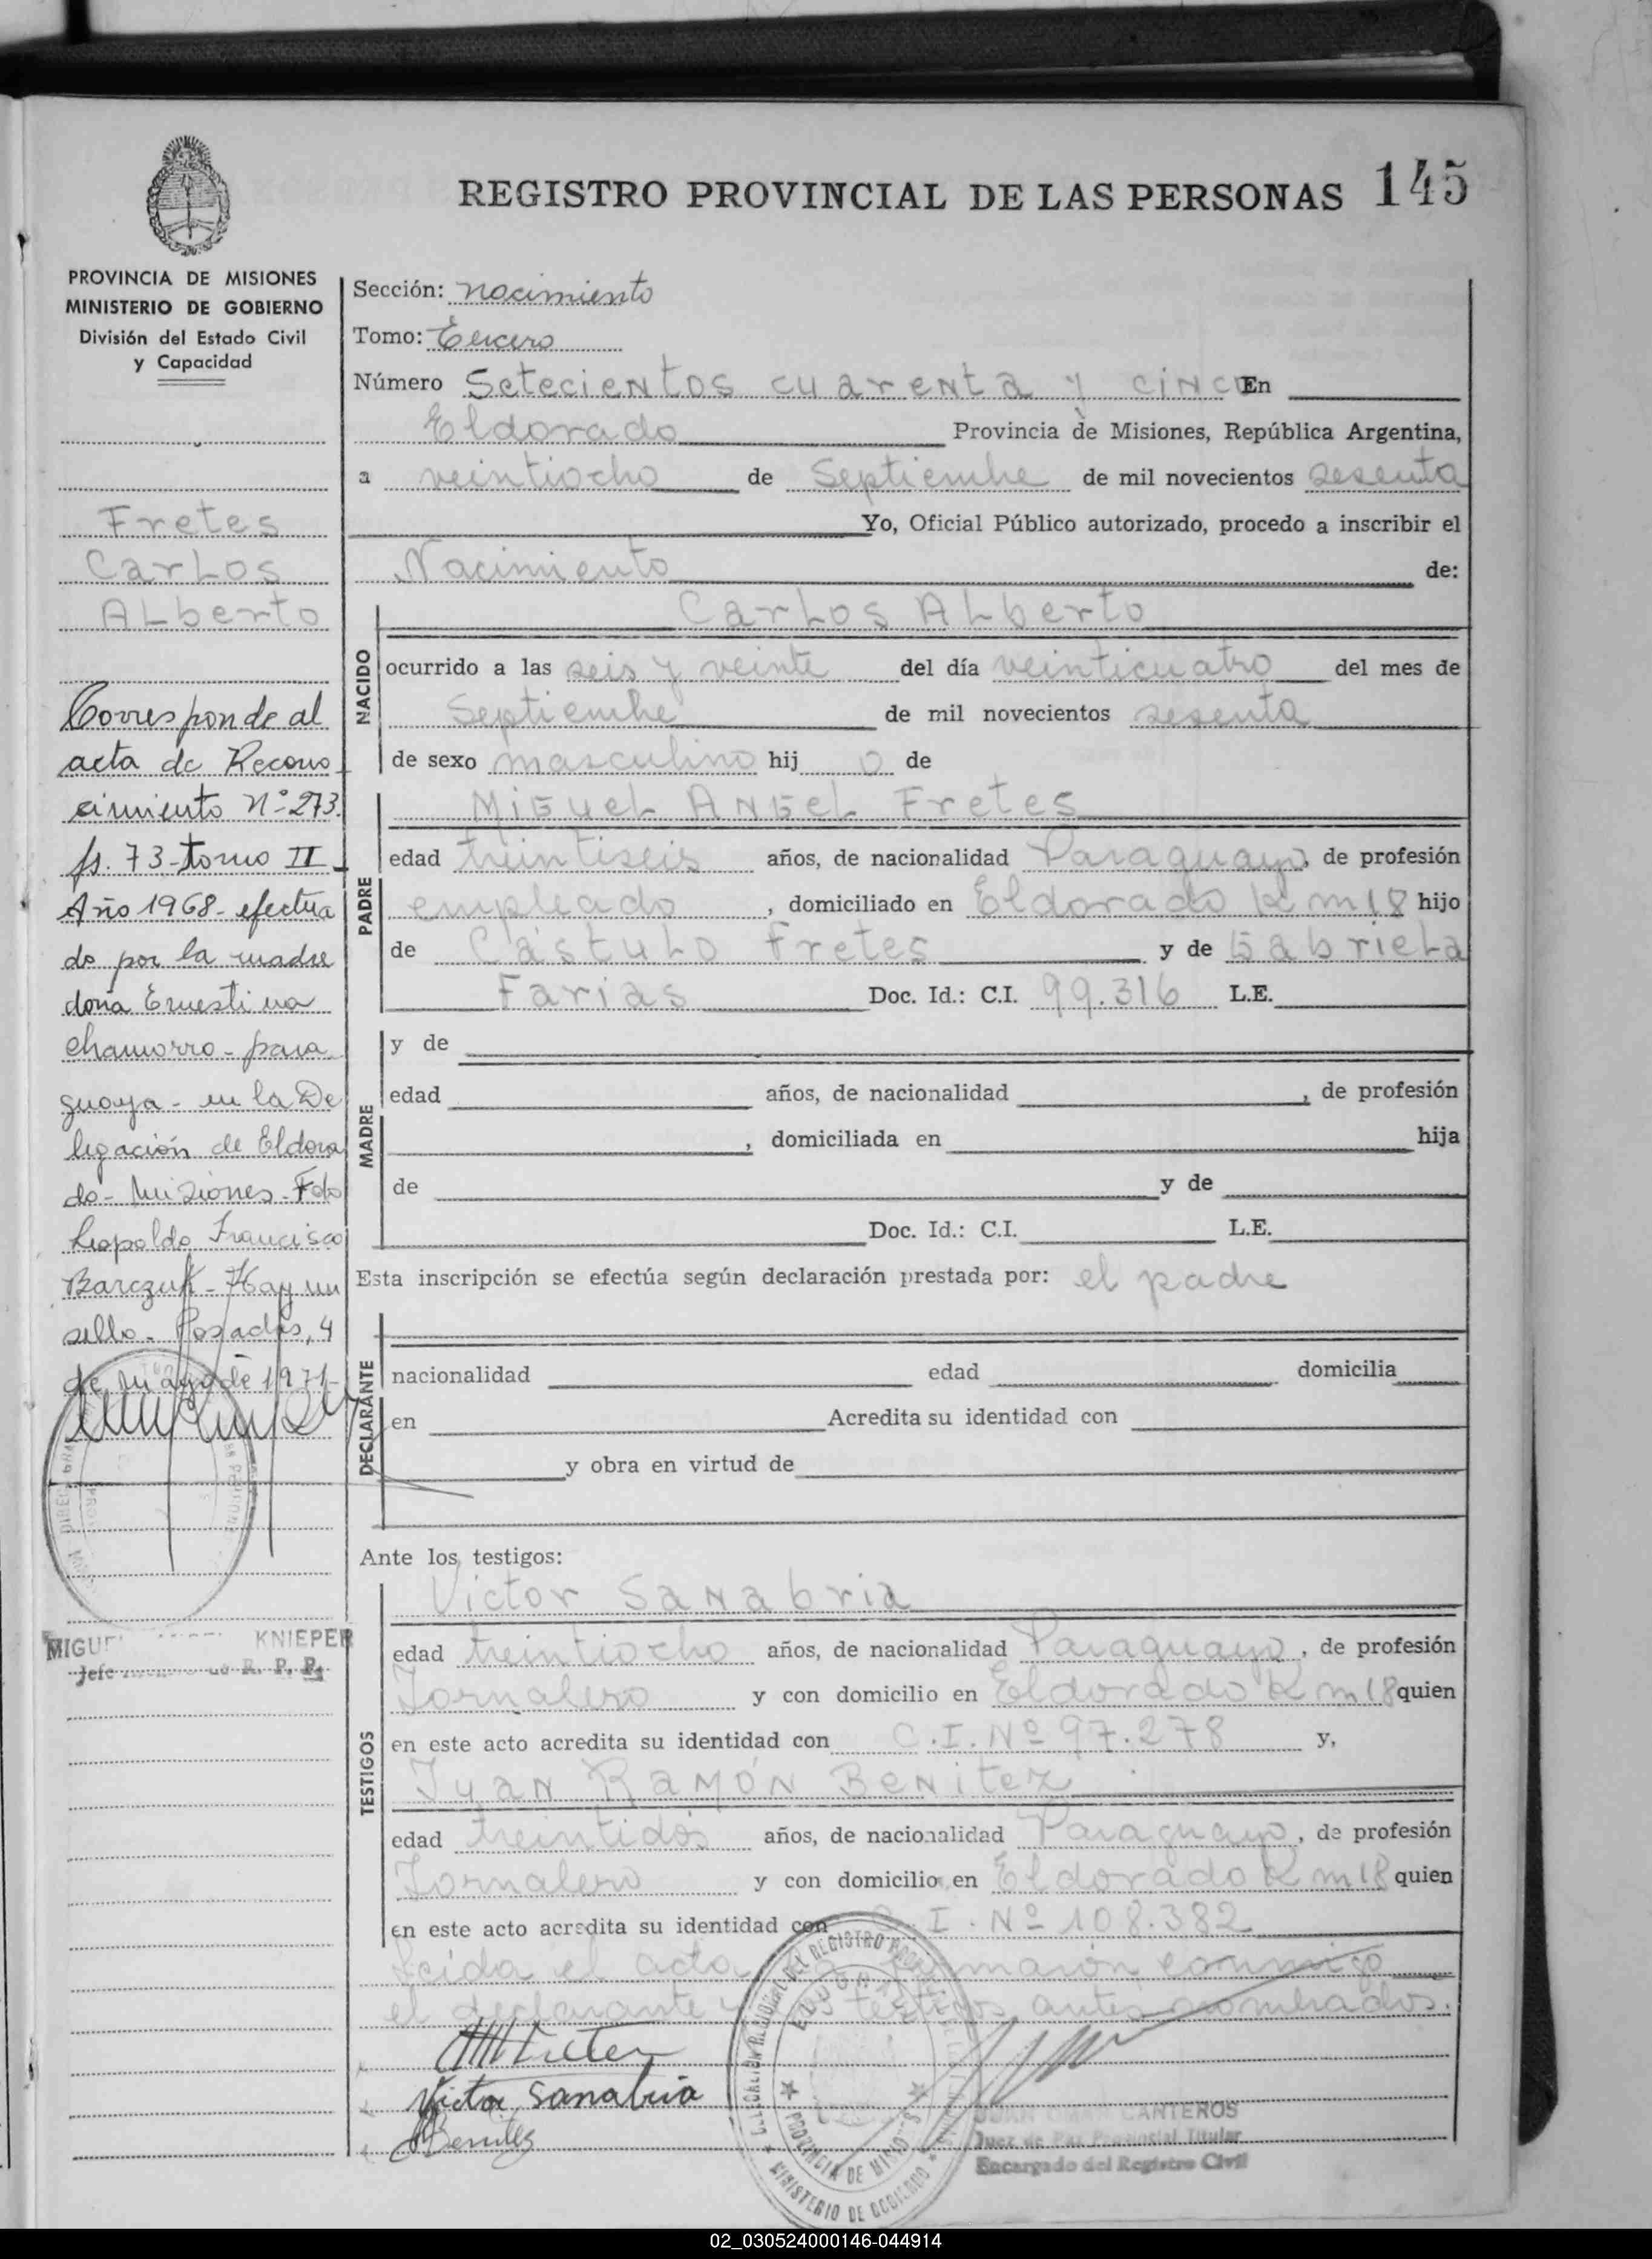 REGISTRO PROVINCIAL DE LAS PERSONAS 145
PROVINCIA DE MISIONES
MINISTERIO DE GOBIERNO
División del Estado Civil
y Capacidad
Fretes
Carlos
Alberto
Corresponde al
acta de Recono
cimiento Nº 273.
fs. 73-tomo II-
Año 1968- efectua
do por la madre
doña Ernestina
Chamorro- para
guaya- en la De
legación de Eldora
do- Misiones- Fdo
Leopoldo Francisco
Barczuk- Hay un
sello- Posadas, 4
de mayo de 1971-
MIGUEL KNIEPER
Jefe R. P. P.
Sección: nacimiento
Tomo: Tercero
Número Setecientos cuarenta y cinco En
Eldorado Provincia de Misiones, República Argentina,
a veintiocho de Septiembre de mil novecientos sesenta
Yo, Oficial Público autorizado, procedo a inscribir el
Nacimiento de:
NACIDO
Carlos Alberto
ocurrido a las seis y veinte del día veinticuatro del mes de
Septiembre de mil novecientos sesenta
de sexo masculino hij o de
PADRE
Miguel Angel Fretes
edad treintiseis años, de nacionalidad Paraguayo, de profesión
empleado, domiciliado en Eldorado Km 18 hijo
de Cástulo Fretes y de Gabriela
Farias Doc. Id.: C.I. 99.316 L.E.
MADRE
y de
edad años, de nacionalidad , de profesión
, domiciliada en hija
de y de
Doc. Id.: C.I. L.E.
Esta inscripción se efectúa según declaración prestada por: el padre
DECLARANTE
nacionalidad edad domicilia
en Acredita su identidad con
y obra en virtud de
Ante los testigos:
TESTIGOS
Victor Sanabria
edad treintiocho años, de nacionalidad Paraguayo, de profesión
Jornalero y con domicilio en Eldorado Km 18 quien
en este acto acredita su identidad con C.I. Nº 97.278 y,
Juan Ramón Benitez
edad treintidós años, de nacionalidad Paraguayo, de profesión
Jornalero y con domicilio en Eldorado Km 18 quien
en este acto acredita su identidad con C. I. Nº 108.382
Leida el acta la firmarón conmigo
el declarante y los testigos antes nombrados.
Victor Sanabria
Benites
MINISTERIO DE GOBIERNO
PROVINCIA DE MISIONES
CANTEROS
Juez de Paz Provincial Titular
Encargado del Registro Civil
02_030524000146-044914